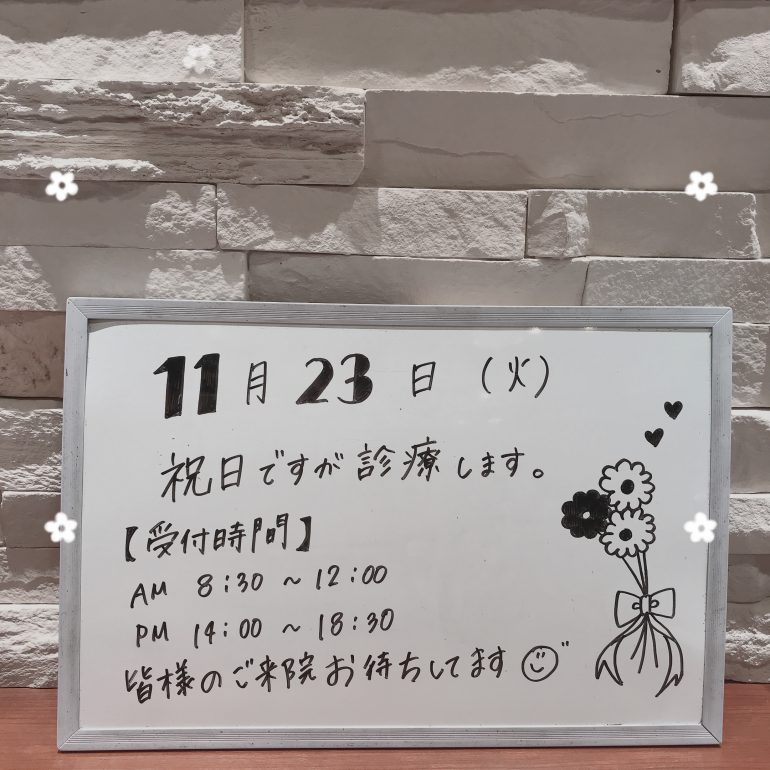 11月23日（火）
祝日ですが診療します。
【受付時間】
AM 8:30 ～ 12:00
PM 14:00 ～ 18:30
皆様のご来院お待ちしてます